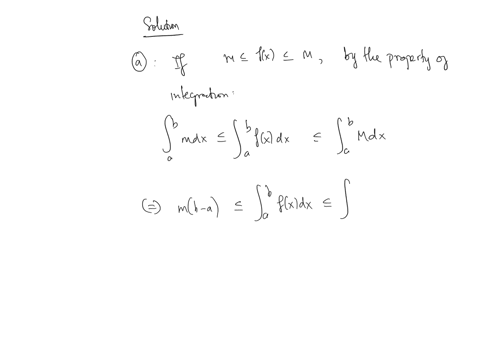 Solution
(a): If m ≤ f(x) ≤ M, by the property of
integration:
∫_a^b m dx ≤ ∫_a^b f(x) dx ≤ ∫_a^b M dx
(=) m(b-a) ≤ ∫_a^b f(x) dx ≤ ∫